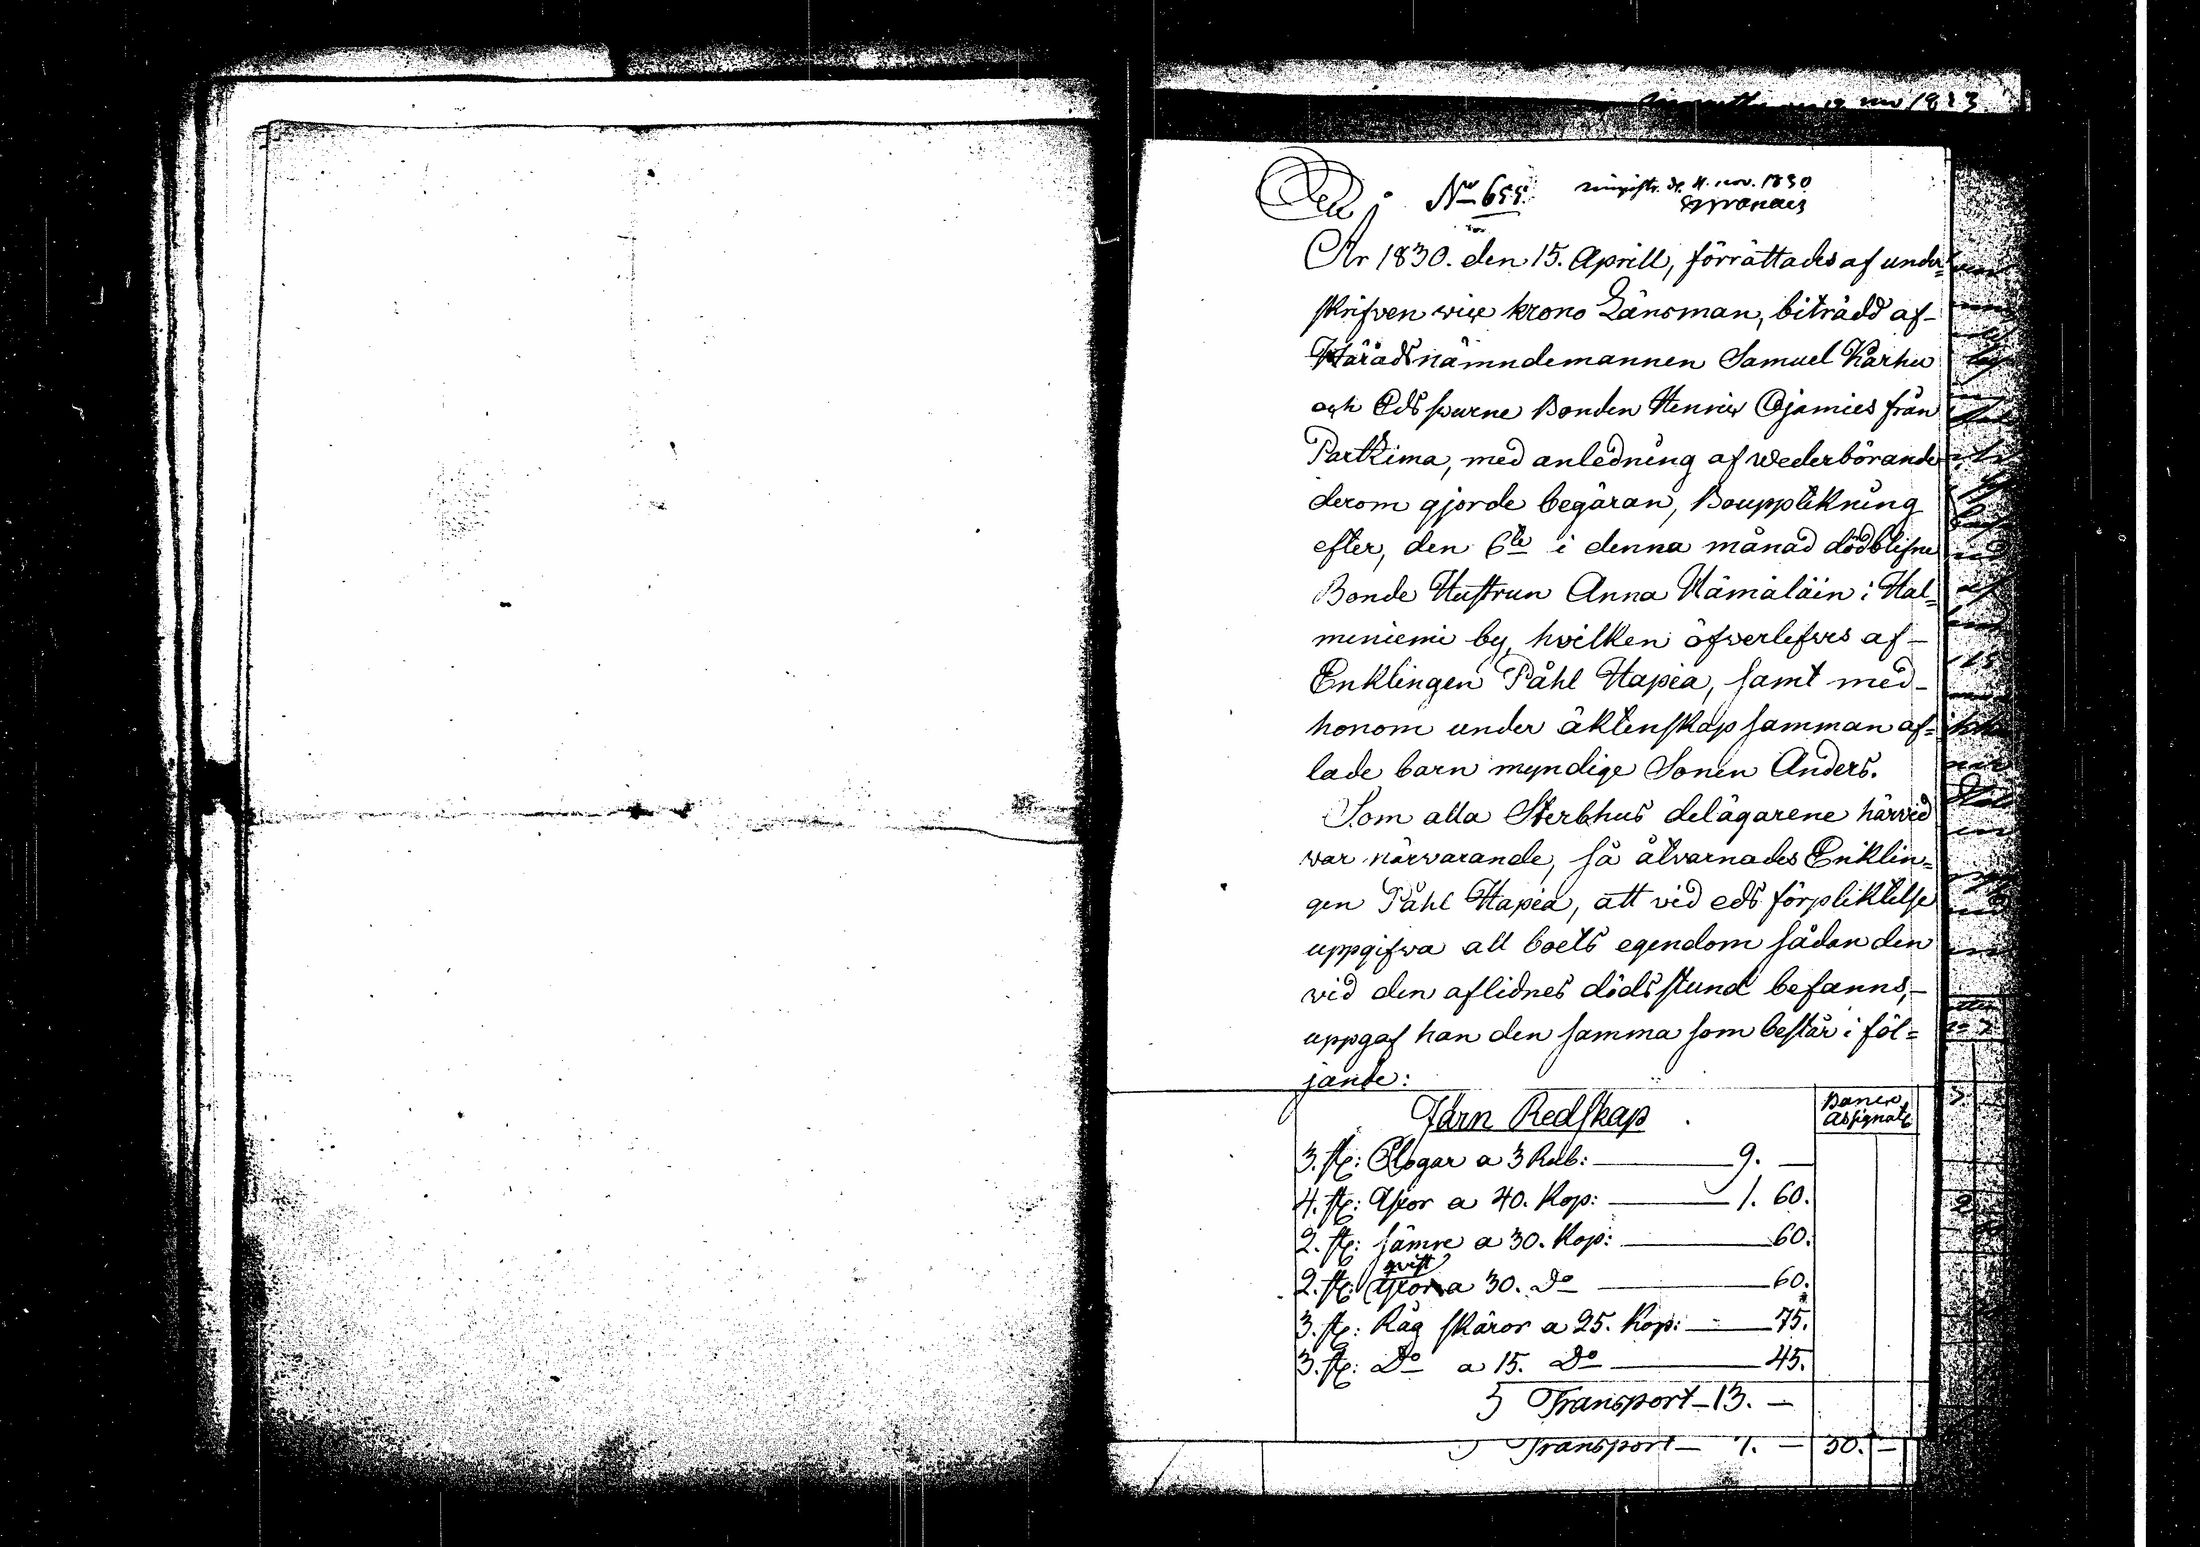 No 655.
4. nov. 1830
År 1830. den 15. Aprill, förrättades af under=
skrifven vice krono Länsman, biträdd af-
Häradsnämndemannen Samuel Karhu
och Edsswurne Bonden Henric Ojamies från
Partkima, med anledning af wederbörande
derom gjorde begäran, Bouppteckning
efter, den 6te i denna månad dödblifne
Bonde Hustrun Anna Hämäläin i Hal=
meniemi by, hvilken öfverlefves af-
Enklingen Påhl Hapea, samt med-
honom under äktenskap samman af=
lade barn myndige Sonen Anders.
Som alla Sterbhus delägarene härvid
var närvarande, så åtvarnades Enklin=
gen Påhl Hapea, att vid eds förpliktelse
uppgifwa all boets egendom sådan den
vid den aflidnes dödsstund befanns,-
uppgaf han den samma som består i föl=
jande:
Järn Redskap
Banco Assignats
3. st: Plogar a 3 Rub: 9. —
4. st: Yxor a 40. Kop: 1. 60.
2. st: sämre a 30. Kop: 60.
qvist
2. st: a 30. Do 60.
3. st: Råg skäror a 25. Kop: 75.
3. st: Do a 15. Do 45.
Transport — 13. —
Transport — 7. — 50. —